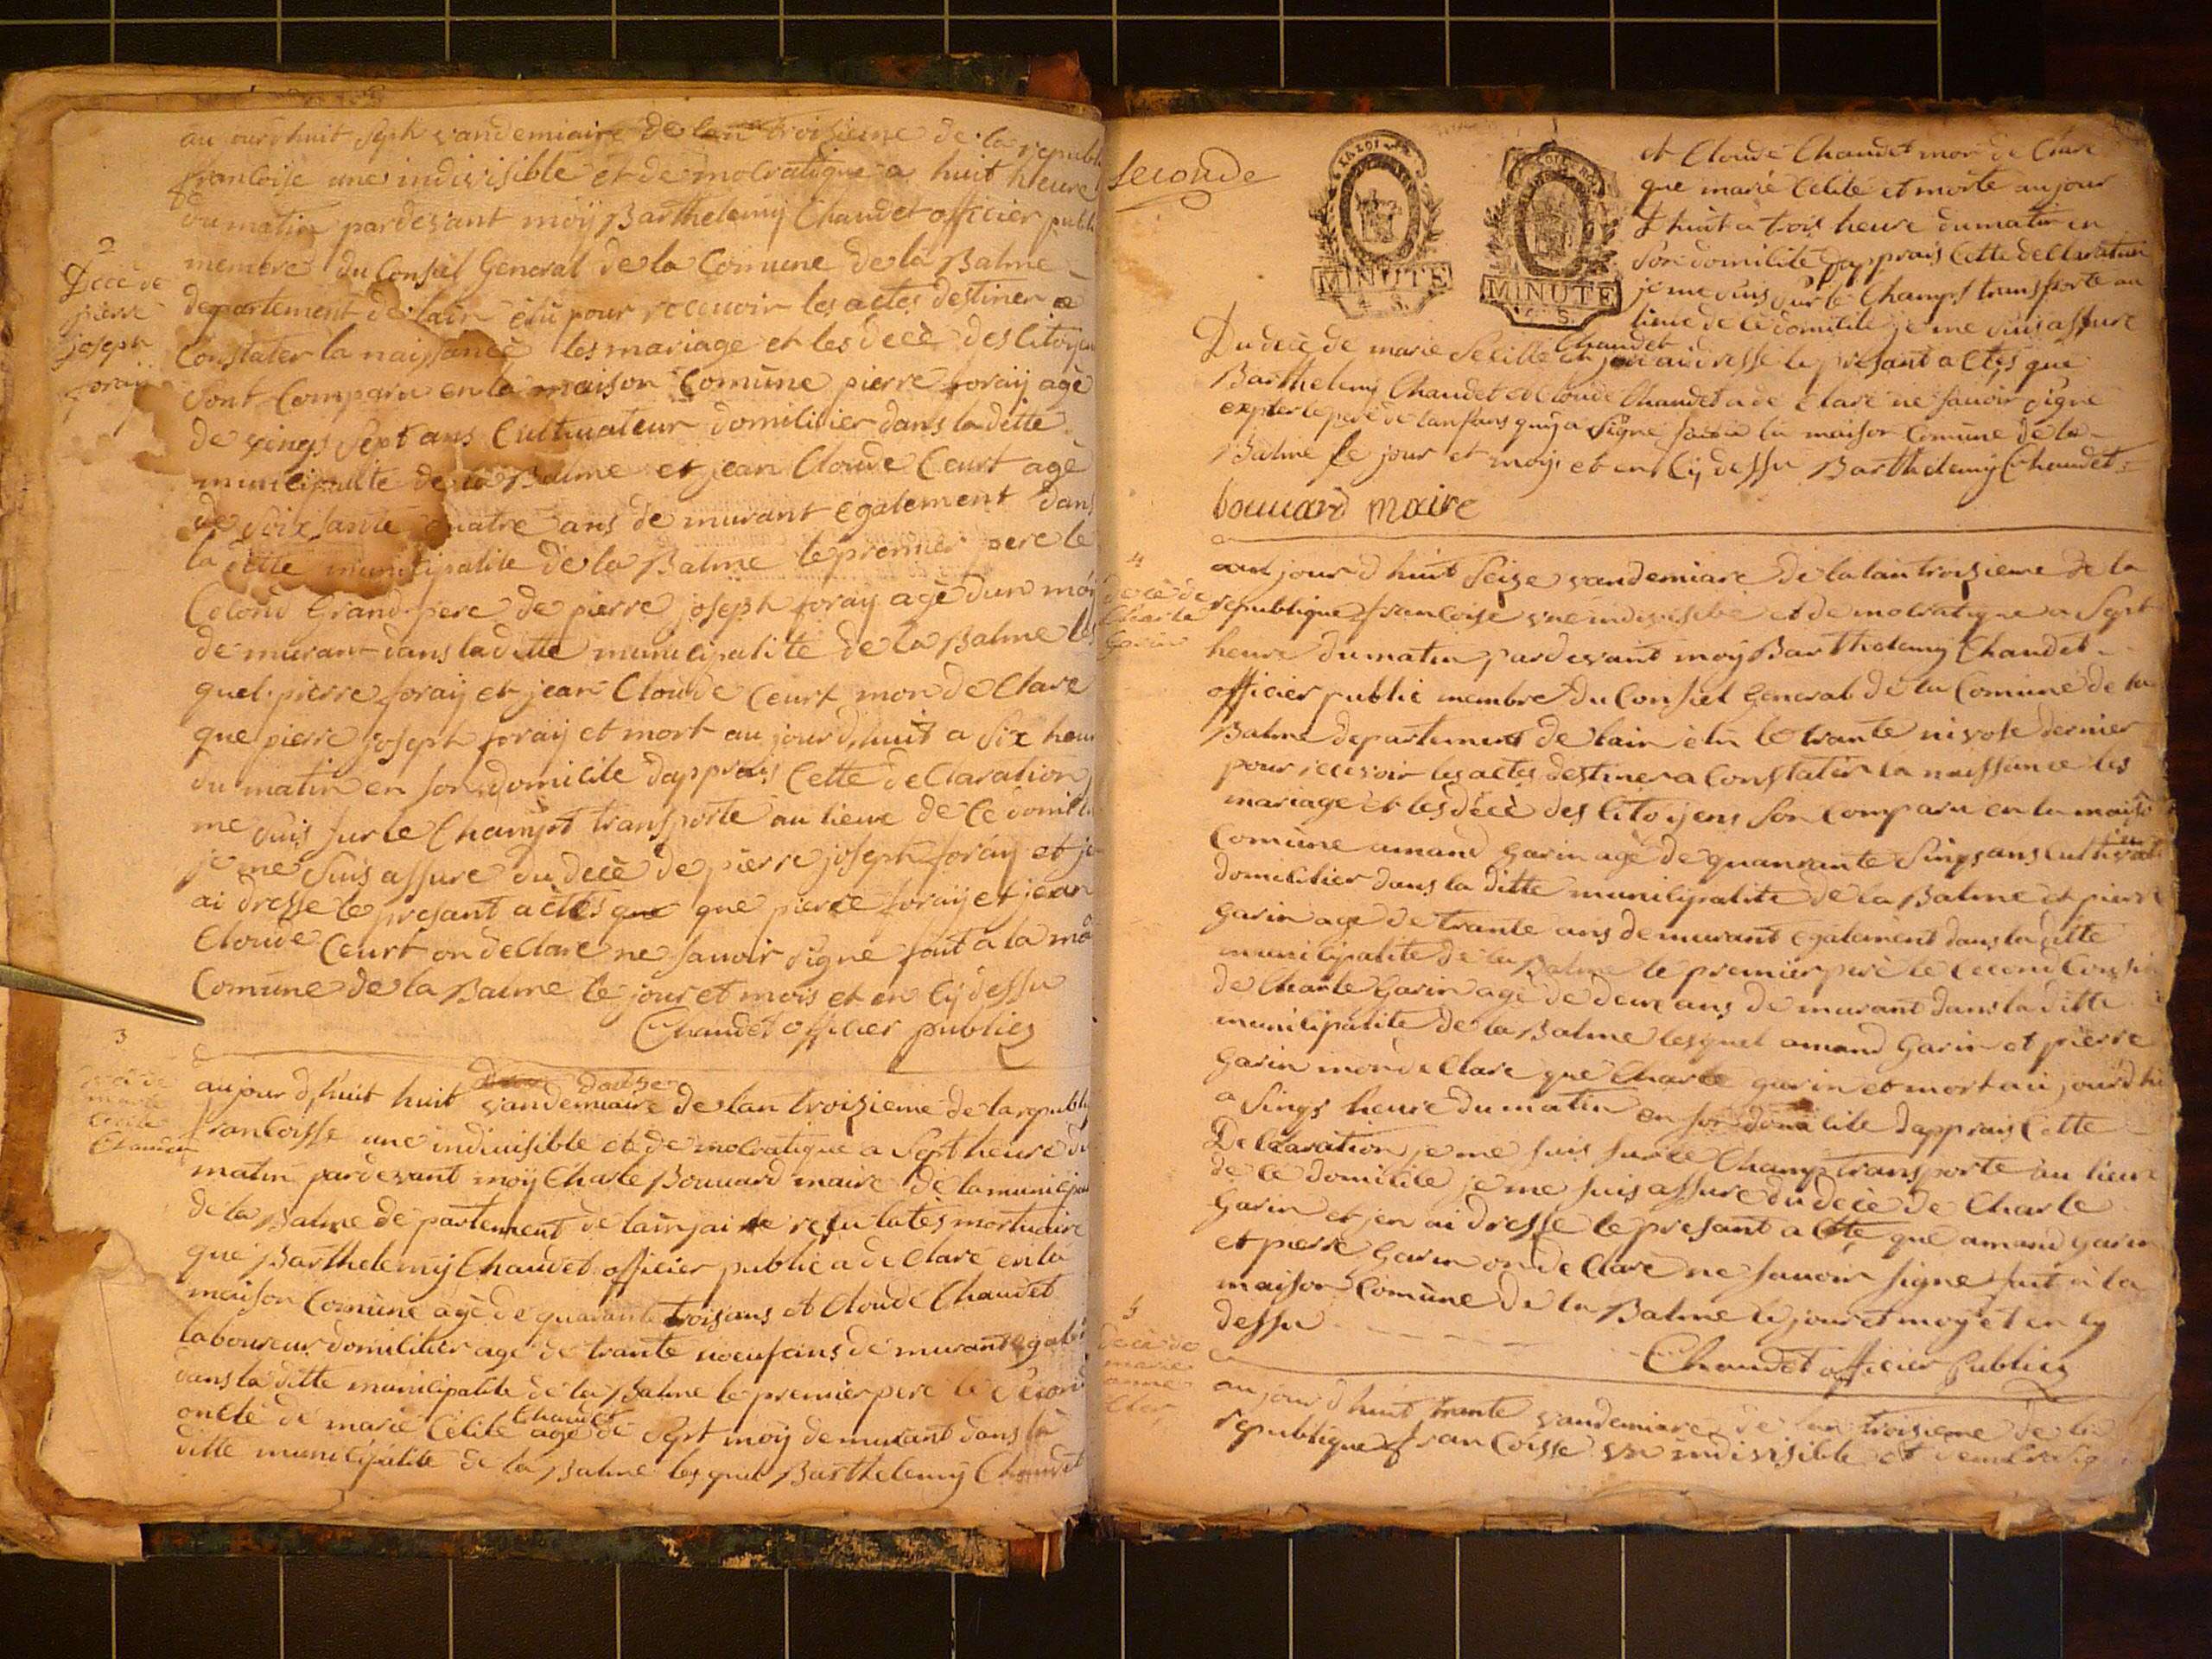 au jourdhuit Sept vandemiaire de lan troisieme de la republ
francoise une indivisible et democratique a huit heure
du matin pardevant moÿ Barthelemÿ Chaudet officier publi
membre du Conseil General de la Comune de la Balme
departement de lain élu pour recevoir les actes destiner a
Constater la naissance les mariage et les décè des Citoyen
Sont Comparu en la maison Comune pierre foraÿ agé
de vings Sept ans Cultivateur domicilier dans la ditte
municipalite de la Balme et jean Cloude Ceurt agé
de Soixsante quatre ans demurant egalement dans
la ditte municipalite de la Balme le premier pere le
Cecond Grand pere de pierre joseph foraÿ agé dun moÿ
demurant dans la ditte municipalite de la Balme les
quel pierre foraÿ et jean Cloude Ceurt mon declare
que pierre joseph foraÿ et mort au jourd,huit a Six heur
du matin en son domicile dapprais Cette declaration
me suis sur le Champt transporte au lieux de Ce domicil
je me suis assure du decè de pierre joseph foraÿ et je
ai dresse le presant actes que que pierre foraÿ et jean
Cloude Ceurt on declare ne savoir signé fait a la mai
Comune de la Balme le jour et mois et en Cÿ dessu
Chaudet officier publics
2
Décè de
pierre
joseph
foraÿ
3
décè de
marie
cecile
Chaudet
douze
aujourd,huit huit vandemiaire de lan troizieme de la republi
francoisse une indivisible et democratique a Sept heure du
matin pardevant moÿ Charle Bouvard maire de la municipa
de la Balme departement de lain jai recu lates mortuaire
que Barthelemÿ Chaudet officier public a declaré en la
maison Comune agé de quarante trois ans et Cloude Chaudet
laboureur domicilier agé de trante noeuf ans demurant egale
dans la ditte municipalite de la Balme le premier pere le Second
Chaudet
oncle de marie Cecile agé de Sept moÿ demurant dans la
ditte municipalite de la Balme les quel Barthelemÿ Chaudet
Seconde
LA LOI
MINUTE
MINUTE
et Cloude Chaudet mon declare
que marie Cecile et morte au jour
dhuit a trois heure du matin en
son domicile dapprais Cette declaration
je me suis sur le Champt transporte au
lieux de Ce domicile je me suis assure
Chaudet
Du decè de marie Secille et jen ai dresse le presant actes que
Barthelemÿ Chaudet et Cloude Chaudet a declaré ne savoir signe
exepter le pere de lanfans quÿ a signé fait a la maison Comune de la
Balme le jour et moÿ et en Cÿ dessu Barthelemÿ Chaudet
bouuard maire
4
décè de
Charle
Garin
au jourdhuit Seize vandemiare de la lan troizieme de la
republique francoise une indivisible et democratique a Sept
heure du matin pardevant moÿ Barthelemÿ Chaudet
officier public membre du Consiel General de la Comune de la
Balme departement de lain élu le trante nivose dernier
pour recevoir les actes destiner a Constater la naissance les
mariage et les décè des Citoÿens Son Comparu en la maiso
Comune amand Garin agé de quarante Sings ans Cultivat
domicilier dans la ditte municipalite de la Balme et pierre
Garin age de trante ans demurant egalement dans la ditte
municipalite de la Balme le premier pere le Cecond Cousin
de Charle Garin agé de deux ans demurant dans la ditte
municipalite de la Balme lesquel amand Garin et pierre
Garin mon declare que Charle garin et mort au jourdhu
a Sings heure du matin en son domicile dapprais Cette
Declaration je me suis sur le Champ transporte au lieux
de Ce domicile je me suis assure du decè de Charle
Garin et jen ai dresse le presant acte que amand garin
et pierre Garin on declare ne savoir signe fait a la
maison Comune de la Balme le jour et moÿ et en Cÿ
dessu
Chaudet officier publics
5
décè de
marie
anne
au jourdhuit trante vandemiare de lan troisieme de la
republique francoisse une indivisible et democratiq